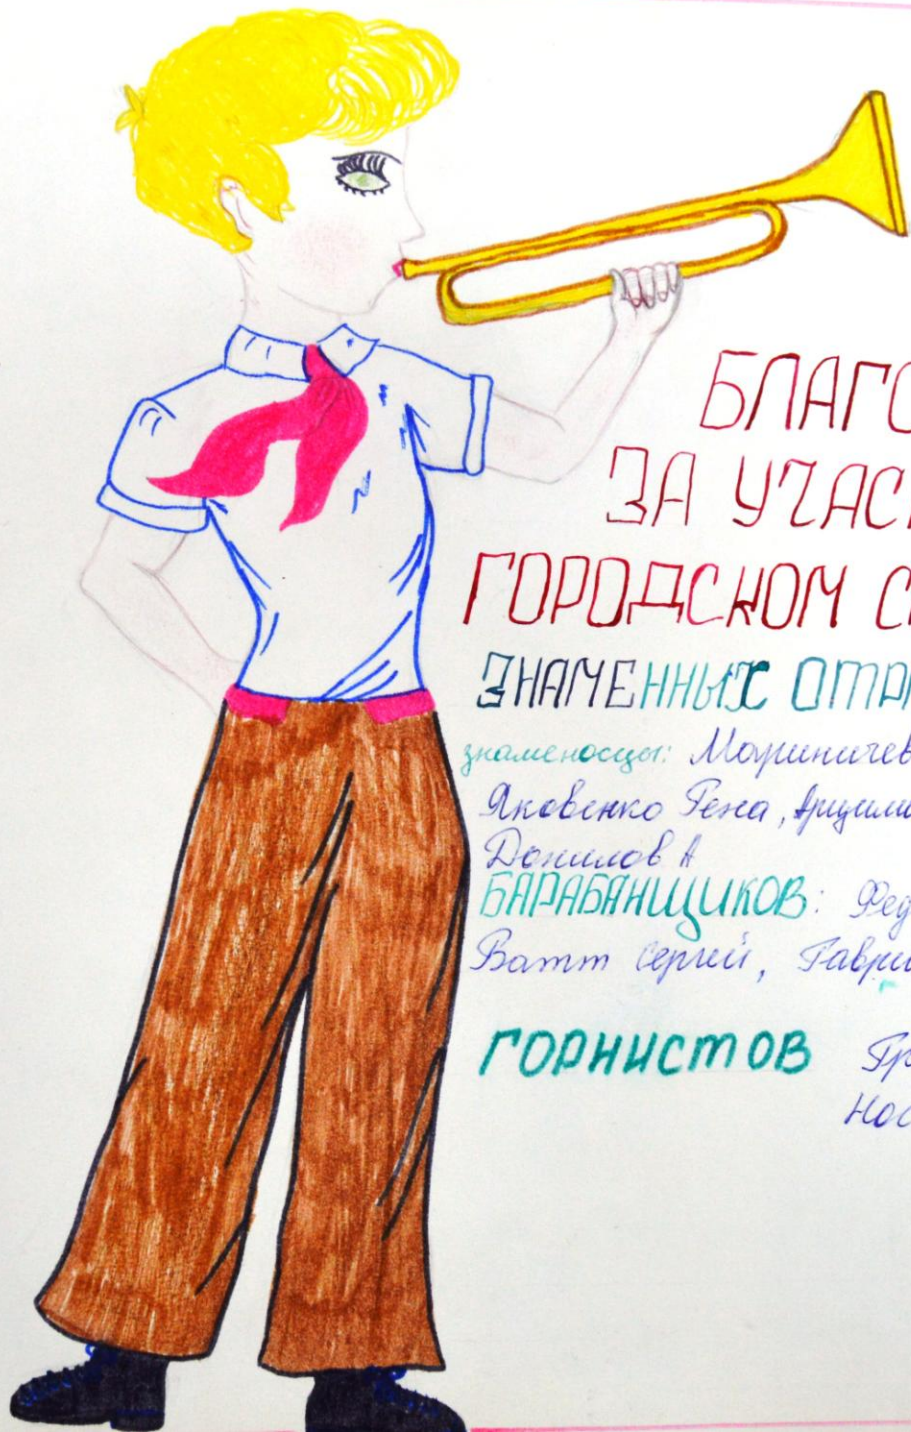 БЛАГО
ЗА УЧАС
ГОРОДСКОМ С
ЗНАМЕННЫХ ОТР
знаменосцы: Мариничев
Яковенко Гена,
Данилов А
БАРАБАНЩИКОВ: Фед
Ватт Сергей, Гаври
ГОРНИСТОВ Гр
Нос